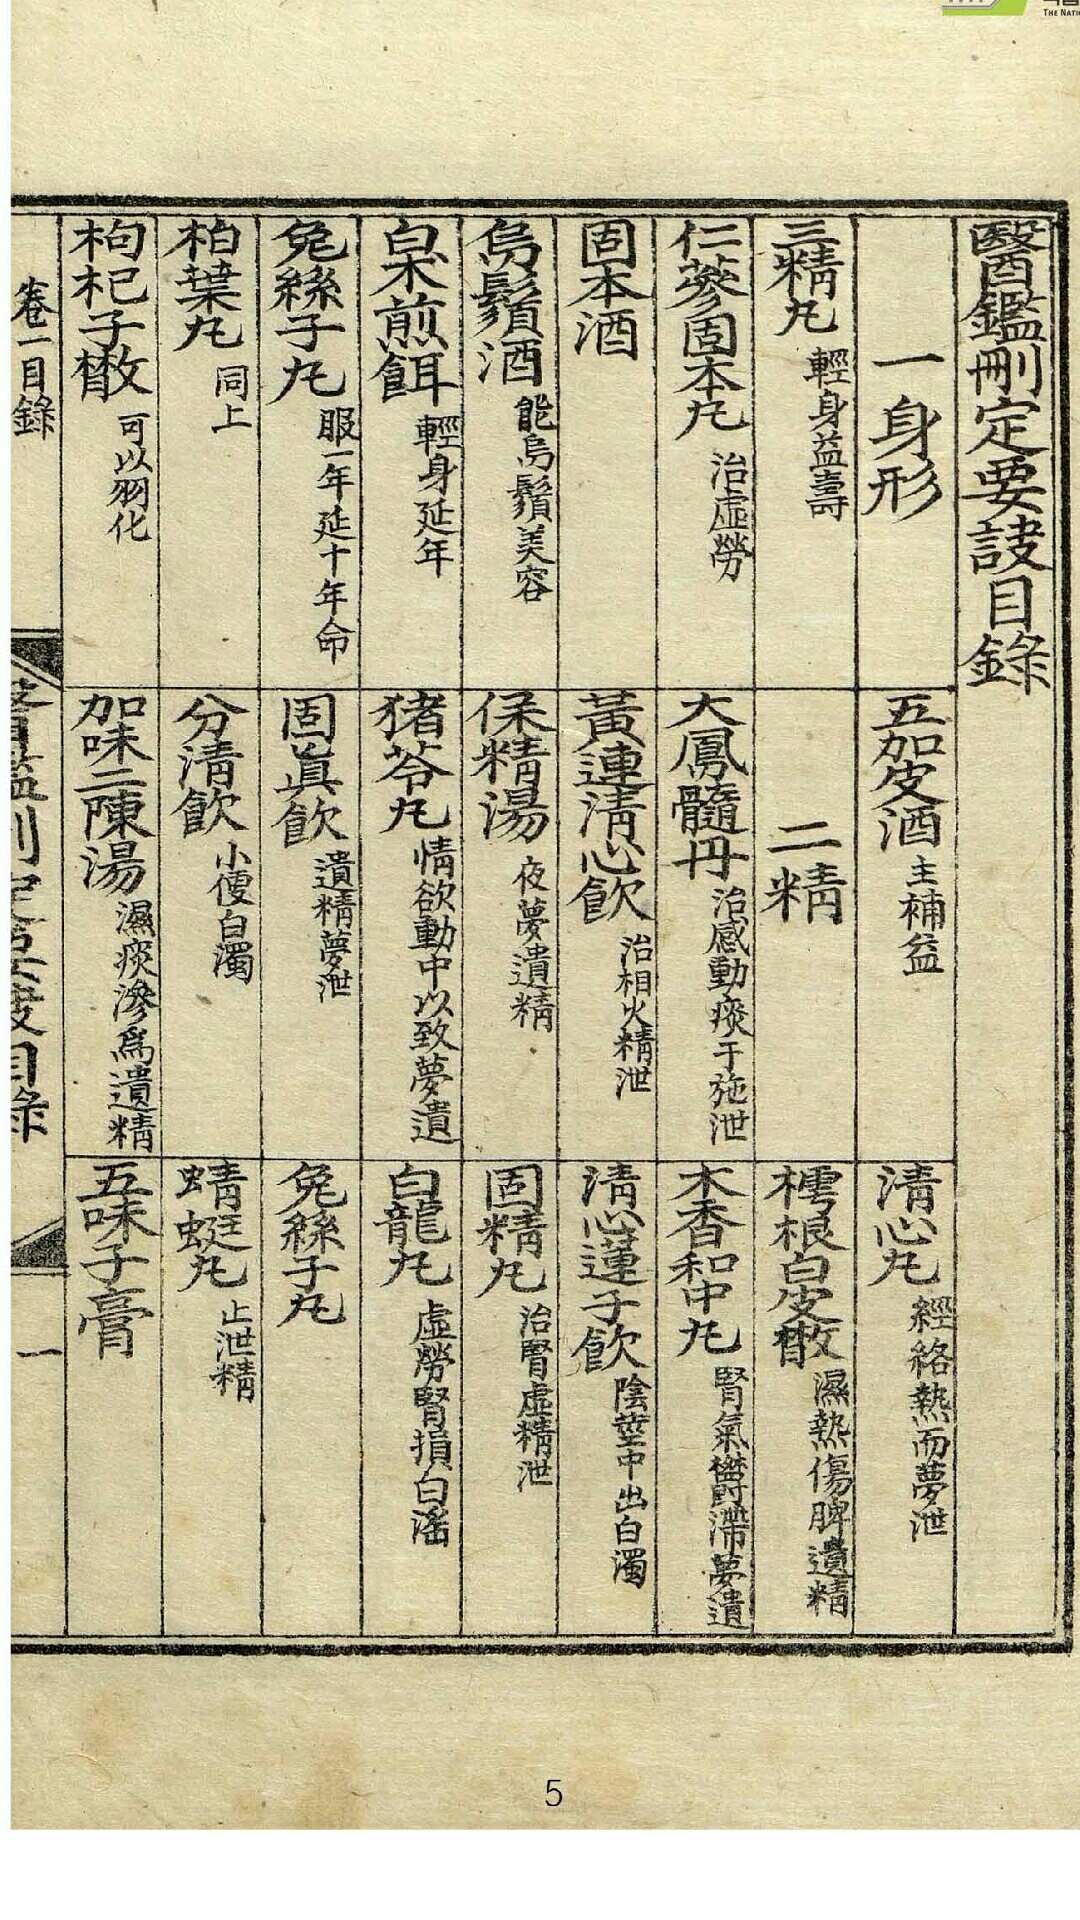 醫鑑刪定要訣目錄
一身形
三精丸 輕身益壽
仁蔘固本丸 治虛勞
固本酒
烏鬚酒 能烏鬚美容
白朮煎餌 輕身延年
兔絲子丸 服一年延十年命
柏葉丸 同上
枸杞子散 可以羽化
五加皮酒 主補益
二精
大鳳髓丹 治感動痰于施泄
黃連淸心飮 治相火精泄
保精湯 夜夢遺精
猪苓丸 情欲動中以致夢遺
固眞飮 遺精夢泄
分淸飮 小便白濁
加味二陳湯 濕痰滲爲遺精
淸心丸 經絡熱而夢泄
樗根白皮散 濕熱傷脾遺精
木香和中丸 腎氣鬱滯夢遺
淸心蓮子飮 陰莖中出白濁
固精丸 治腎虛精泄
白龍丸 虛勞腎損白淫
兔絲子丸
蜻蜓丸 止泄精
五味子膏
卷一目錄
醫鑑刪定要訣目錄
一
5
THE NATI